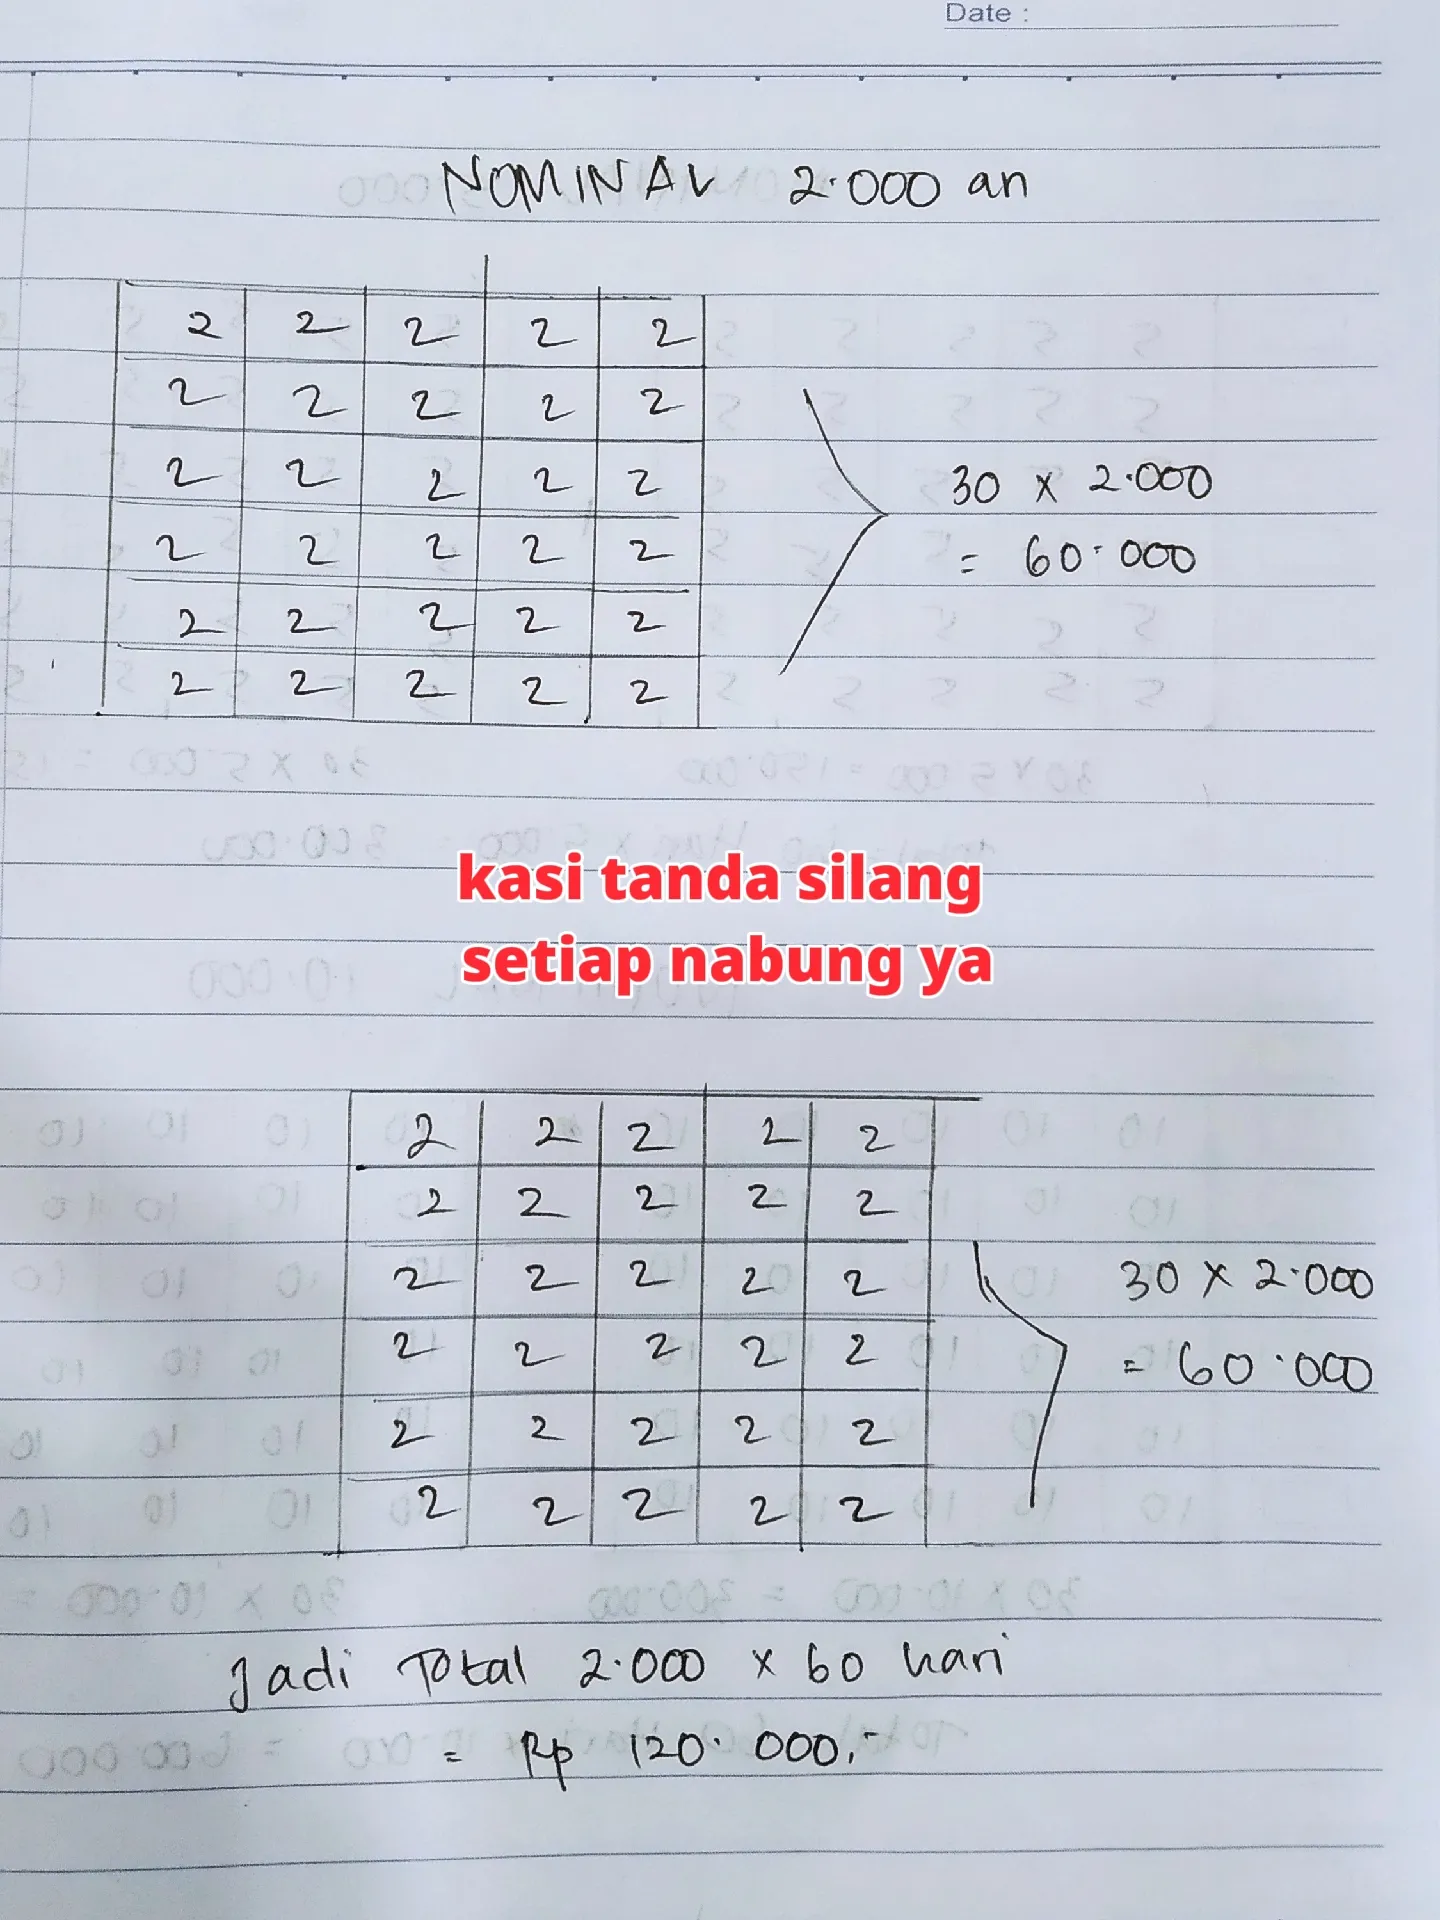 Date :
NOMINAL 2.000 an
2 2 2 2 2
2 2 2 2 2
2 2 2 2 2
2 2 2 2 2
2 2 2 2 2
2 2 2 2 2
30 x 2.000
= 60.000
kasi tanda silang
setiap nabung ya
2 2 2 2 2
2 2 2 2 2
2 2 2 2 2
2 2 2 2 2
2 2 2 2 2
2 2 2 2 2
30 x 2.000
= 60.000
Jadi Total 2.000 x 60 hari
= Rp 120.000,-